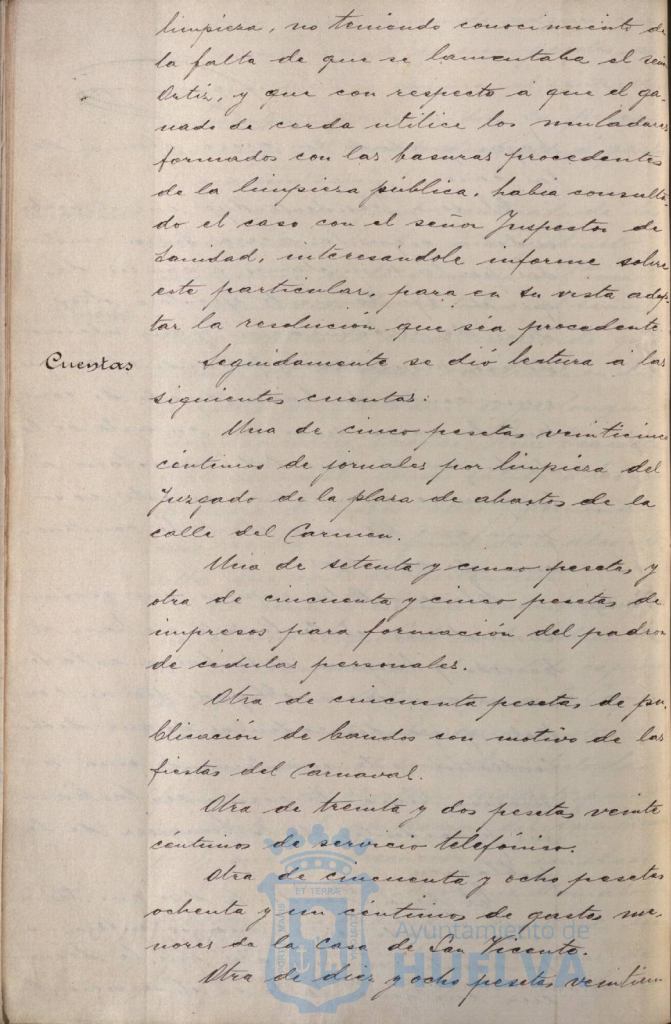 limpieza, no teniendo conocimiento de
la falta de que se lamentaba el señor
Ortiz, y que con respecto á que el ga-
nado de cerda utilice los muladares
formados con las basuras procedentes
de la limpieza pública, habia consulta-
do el caso con el señor Inspector de
Sanidad, interesándole informe sobre
este particular, para en su vista adop-
tar la resolución que sea procedente
Cuentas
Seguidamente se dió lectura á las
siguientes cuentas:
Una de cinco pesetas veinticinco
céntimos de jornales por limpieza del
Juzgado de la plaza de abastos de la
calle del Carmen.
Una de setenta y cinco pesetas y
otra de cincuenta y cinco pesetas de
impresos para formación del padron
de cédulas personales.
Otra de cincuenta pesetas de pu-
blicación de bandos con motivo de las
fiestas del Carnaval.
Otra de treinta y dos pesetas veinte
céntimos de servicio telefónico.
Otra de cincuenta y ocho pesetas
ochenta y un céntimos de gastos me-
nores de la Casa de San Vicente.
Otra de diez y ocho pesetas veintiun
Ayuntamiento de
HUELVA